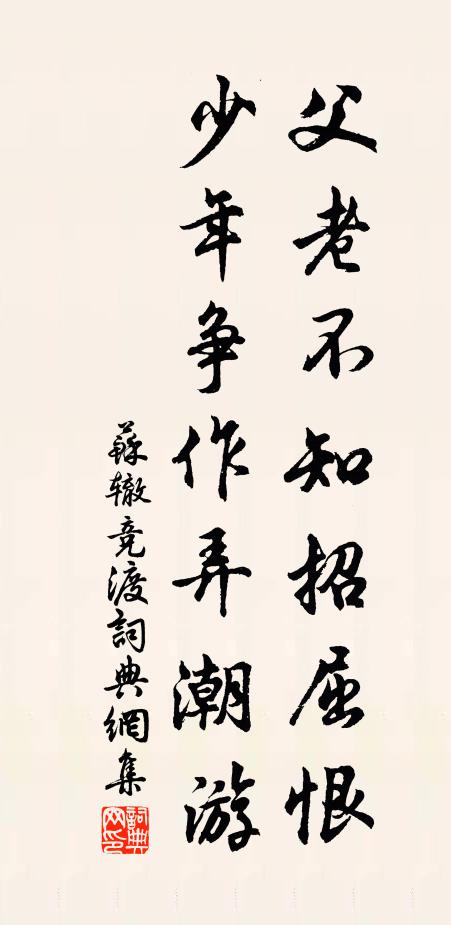 父老不知招屈恨
少年争作弄潮游
蘇辙竞渡詞典網集
詞典网印